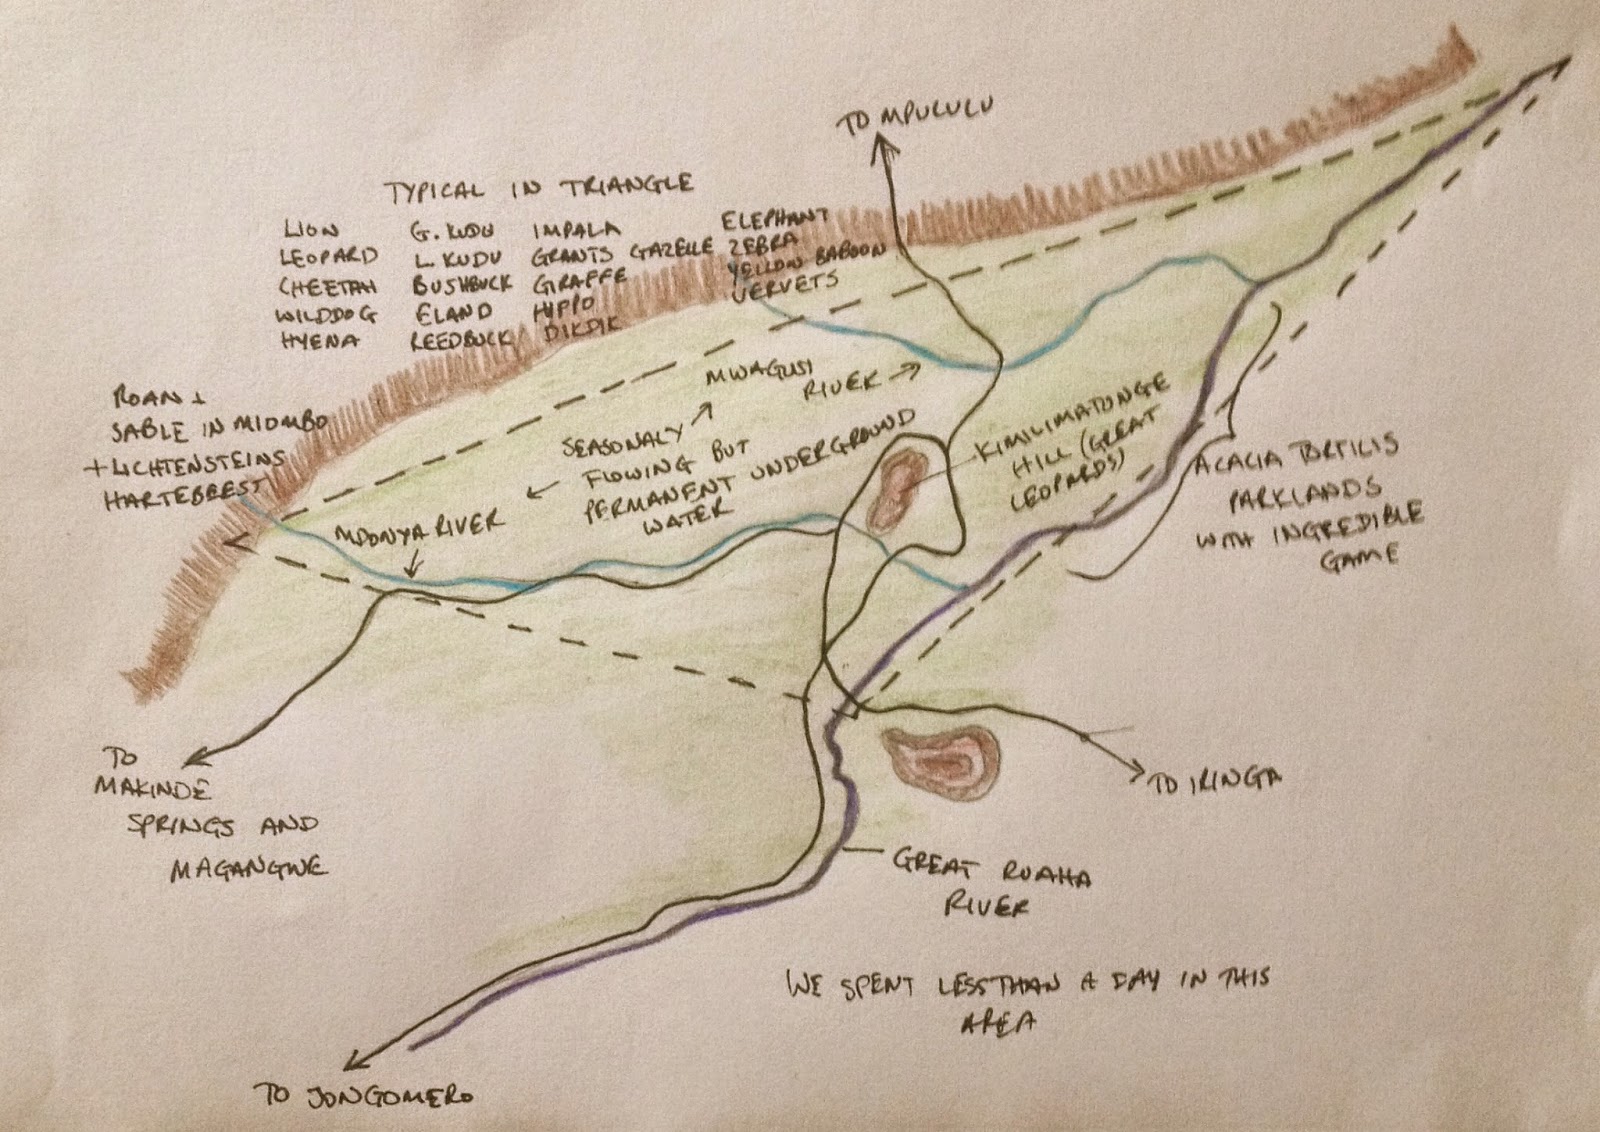 TO MPULULU
TYPICAL IN TRIANGLE
LION
LEOPARD
CHEETAH
WILDDOG
HYENA
G. KUDU
L. KUDU
BUSHBUCK
ELAND
REEDBUCK
IMPALA
GRANTS GAZELLE
GIRAFFE
HIPPO
DIKDIK
ELEPHANT
ZEBRA
YELLOW BABOON
VERVETS
ROAN +
SABLE IN MIOMBO
+ LICHTENSTEINS
HARTEBEEST
MWAGUSI
RIVER
SEASONALY
FLOWING BUT
PERMANENT UNDERGROUND
WATER
MDONYA RIVER
KIMILIMATONGE
HILL (GREAT
LEOPARDS)
ACACIA TORTILIS
PARKLANDS
WITH INGREDIBLE
GAME
TO
MAKINDE
SPRINGS AND
MAGANGWE
TO IRINGA
GREAT RUAHA
RIVER
WE SPENT LESS THAN A DAY IN THIS
AREA
TO JONGOMERO